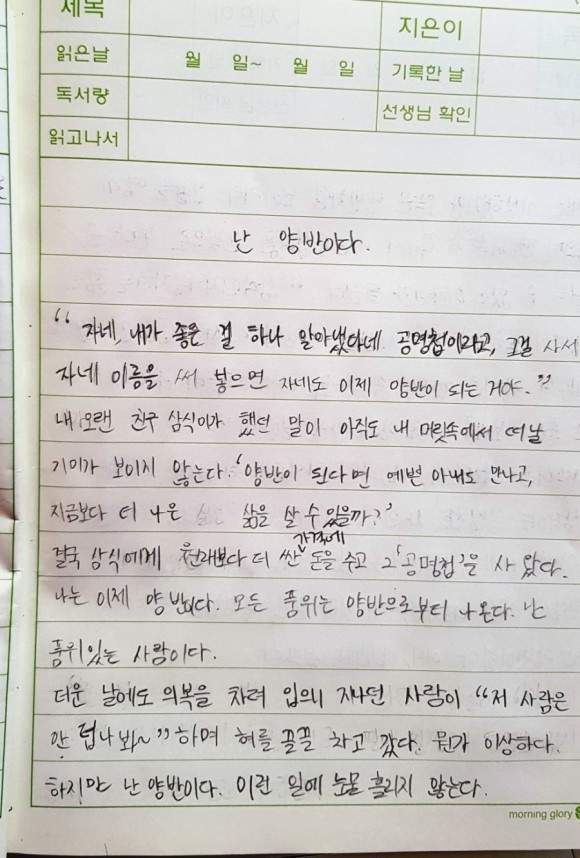 제목
지은이
읽은날 월 일~ 월 일 기록한 날
독서량 선생님 확인
읽고나서
난 양반이다.
“자네, 내가 좋은 걸 하나 알아냈다네 공명첩이라고, 그걸 사서
자네 이름을 써 넣으면 자네도 이제 양반이 되는 거야.”
내 오랜 친구 삼식이가 했던 말이 아직도 내 머릿속에서 떠날
기미가 보이지 않는다. ‘양반이 된다면 예쁜 아내도 만나고,
지금보다 더 나은 삶을 살 수 있을까?’
가격에
결국 삼식에게 원래보다 더 싼 돈을 주고 그 ‘공명첩’을 사 왔다.
나는 이제 양반이다. 모든 품위는 양반으로부터 나온다. 난
품위있는 사람이다.
더운 날에도 의복을 차려 입으니 지나던 사람이 “저 사람은
안 덥나봐~” 하며 혀를 끌끌 차고 갔다. 뭔가 이상하다.
하지만 난 양반이다. 이런 일에 눈물 흘리지 않는다.
morning glory